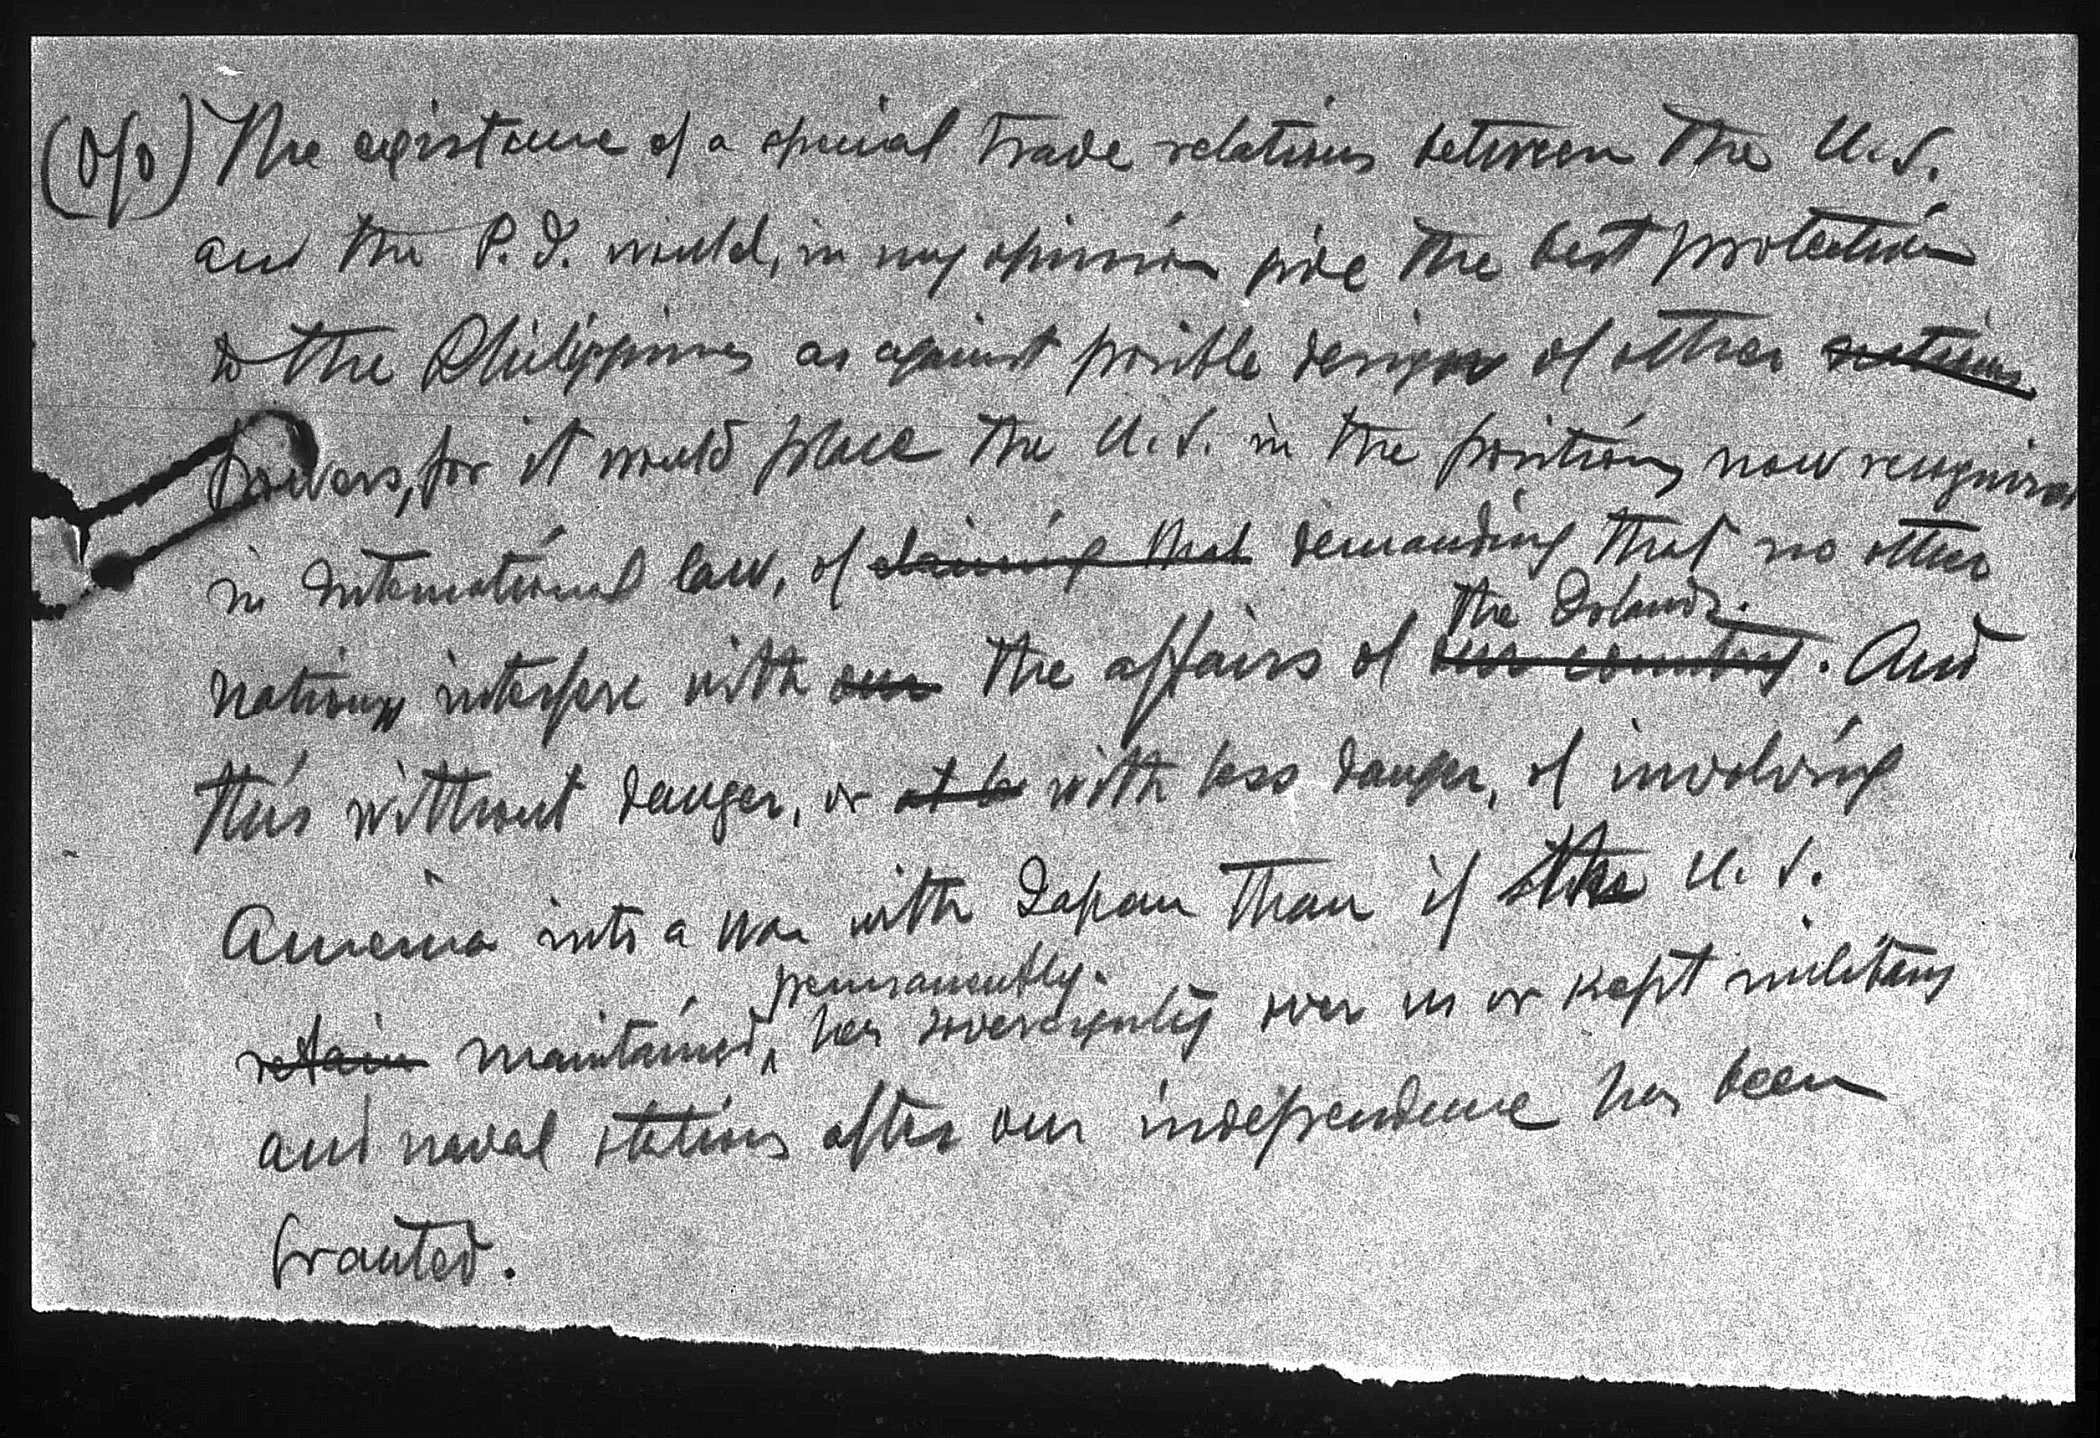 (o/o) The existence of a special trade relations between the U.S.
and the P.I. would, in my opinion give the best protection
to the Philippines as against posible designs of other nations
Powers, for it would place the U.S. in the position, now recognized
in International law, of claiming that demanding that no other
the Islands.
nation interfere with our the affairs of our country. And
this without danger, or at le with less danger, of involving
America into a war with Japan than if the U.S.
permanently
retain maintained, her sovereignty over us or kept military
and naval stations after our independence has been
granted.